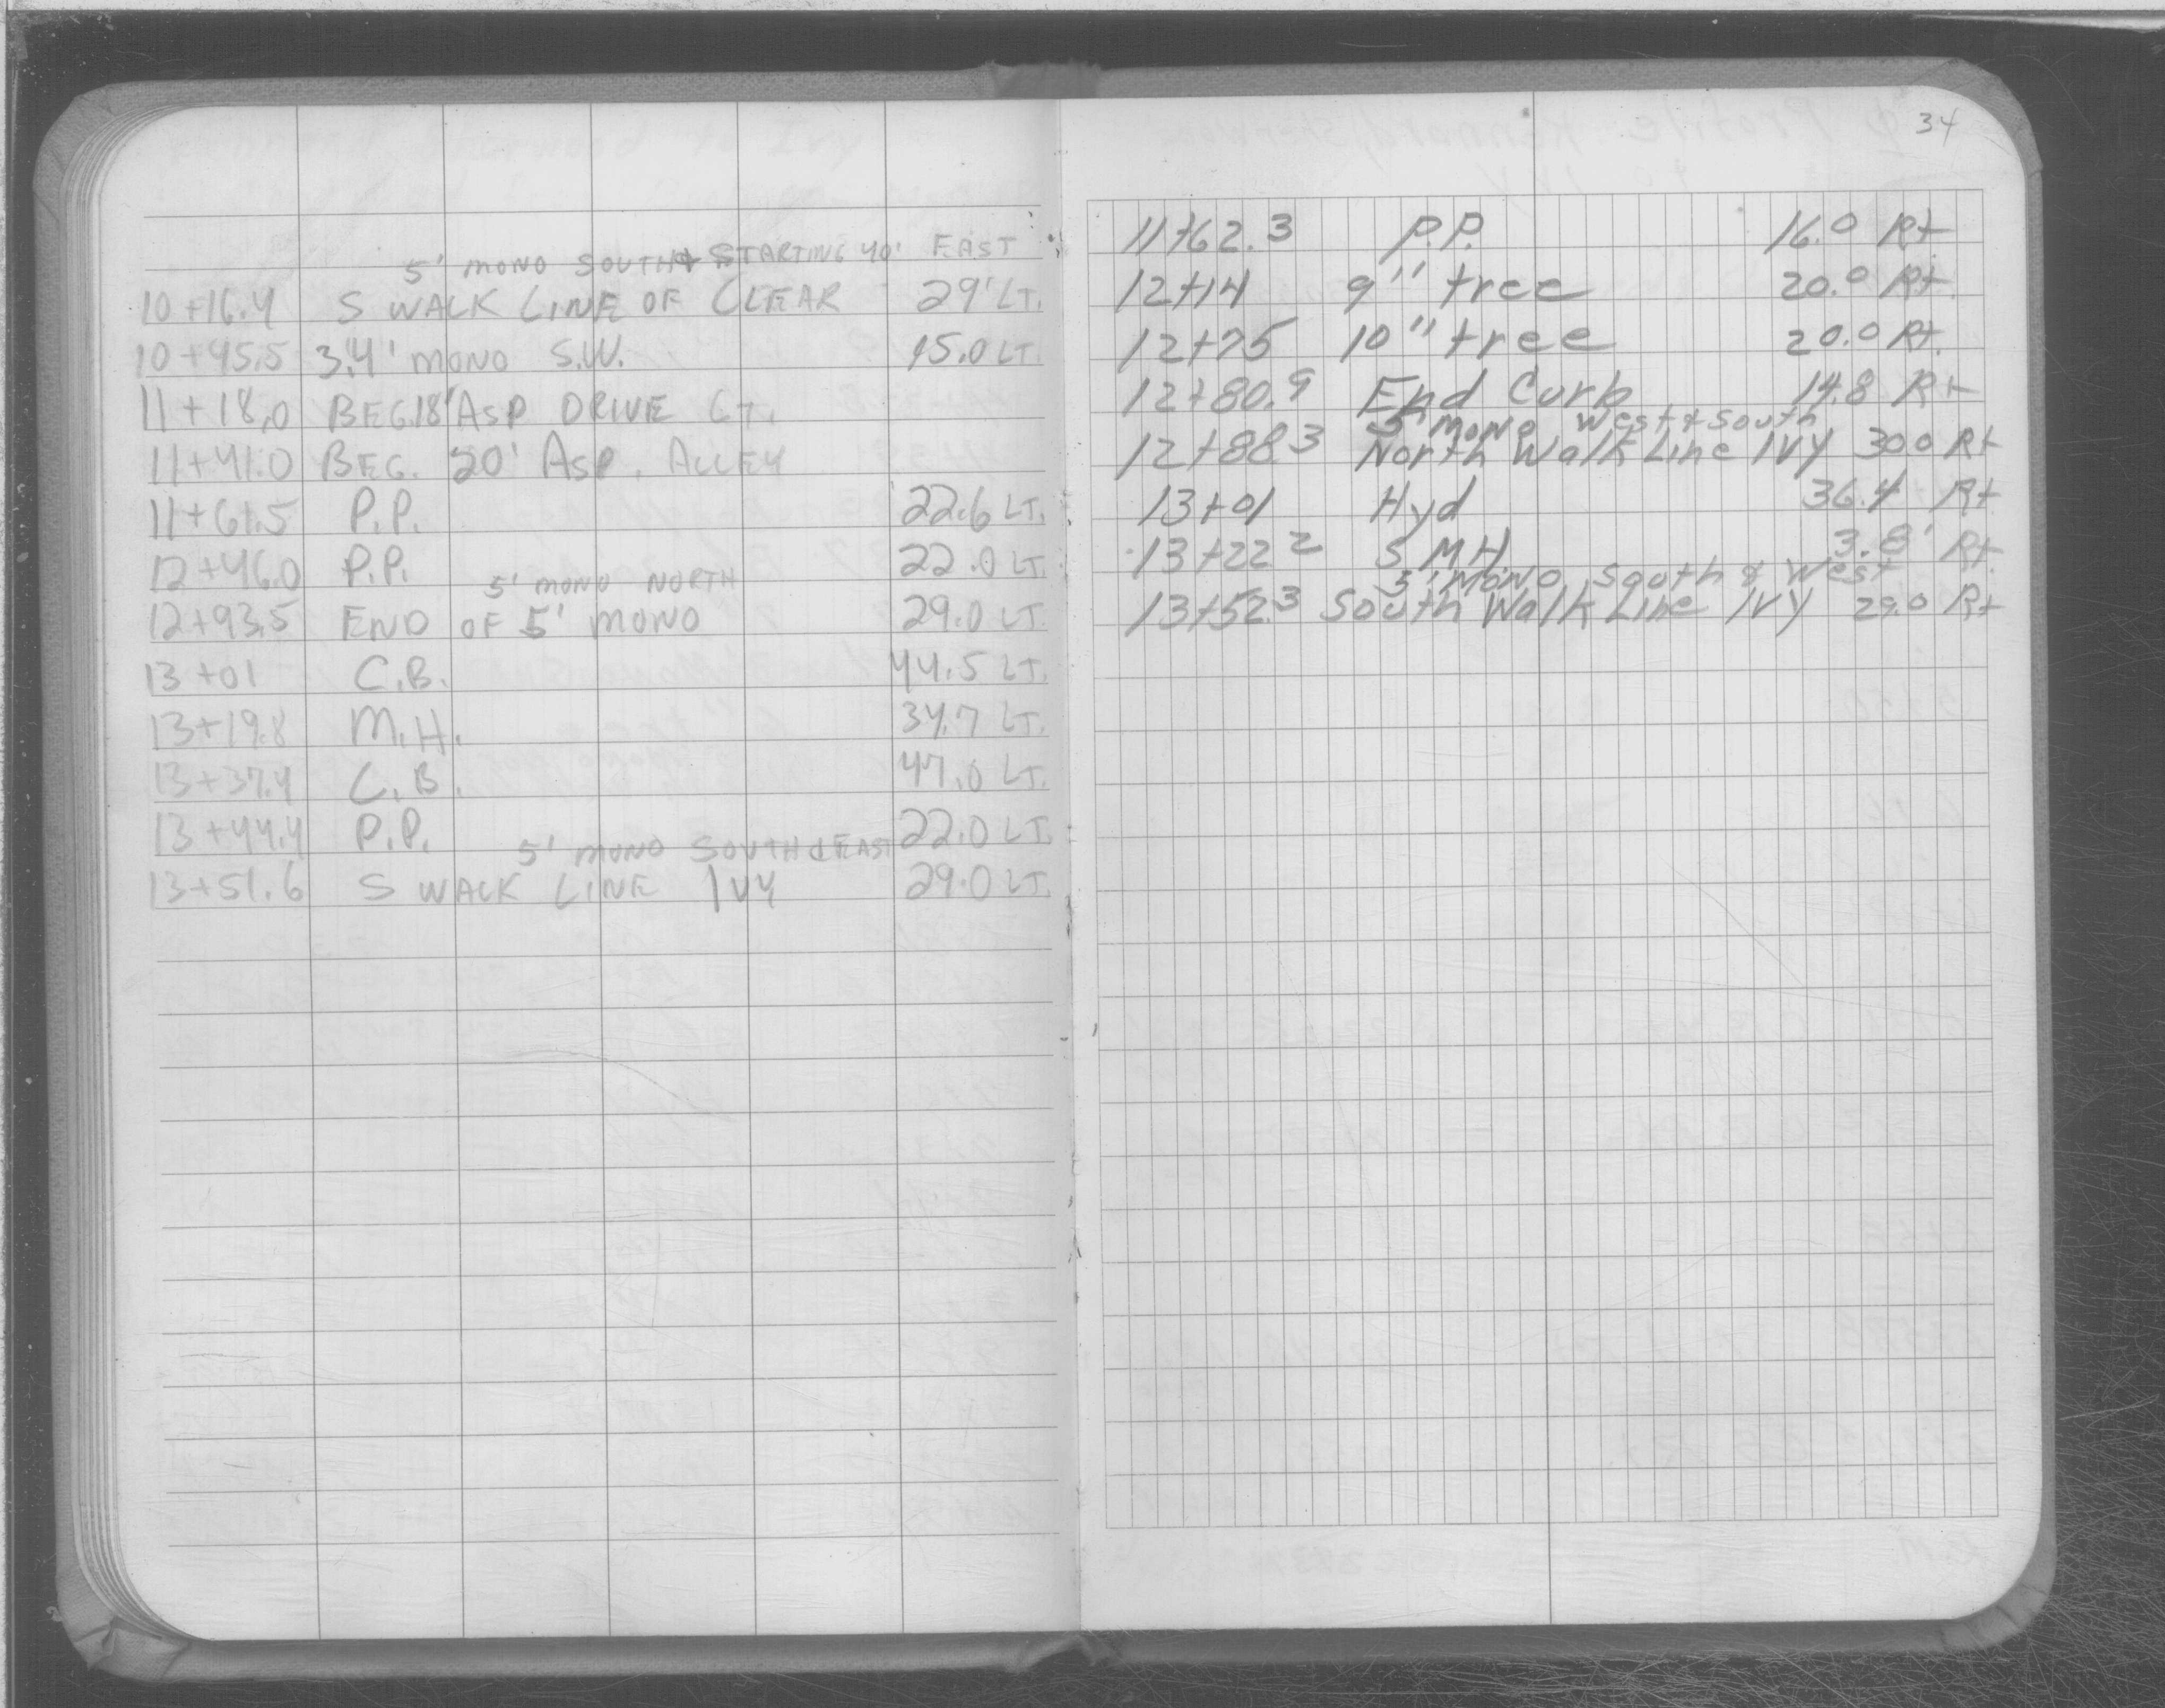 5' MONO SOUTH & STARTING 40' EAST
10+16.4 S WALK LINE OF CLEAR 29' LT.
10+45.5 3.4' MONO S.W. 15.0 LT.
11+18.0 BEG. 18' ASP DRIVE LT.
11+41.0 BEG. 20' ASP. ALLEY
11+61.5 P.P. 22.6 LT.
12+46.0 P.P. 22.0 LT.
5' MONO NORTH
12+93.5 END OF 5' MONO 29.0 LT.
13+01 C.B. 44.5 LT.
13+19.8 M.H. 34.7 LT.
13+37.4 C.B. 47.0 LT.
13+44.4 P.P. 22.0 LT.
5' MONO SOUTH & EAST
13+51.6 S WALK LINE IVY 29.0 LT.
34
11+62.3 P.P. 16.0 Rt
12+14 9" tree 20.0 Rt.
12+75 10" tree 20.0 Rt.
12+80.9 End Curb 14.8 Rt
5' Mono West & South
12+88.3 North Walk Line IVY 30.0 Rt
13+01 Hyd 36.4 Rt
13+22.2 S.M.H. 3.8' Rt.
5' Mono South & West
13+52.3 South Walk Line IVY 29.0 Rt